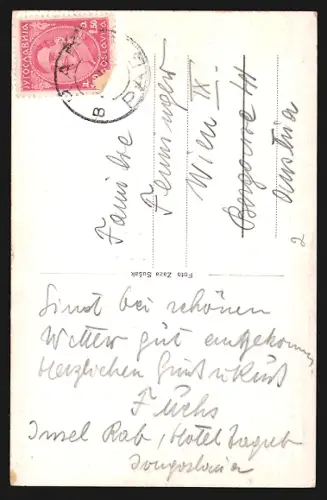 ЈУГОСЛАВИЈА
JUGOSLAVIJA
1.50
RAB
B
Familie
Fenninger
Wien IX.
Berggasse 41
Austria
2
Foto Zaza Sušak
Sind bei schönen
Wetter gut angekommen
Herzlichen Gruß u Kuß
Fuchs
Insel Rab, Hotel Zagreb
Jougoslavia